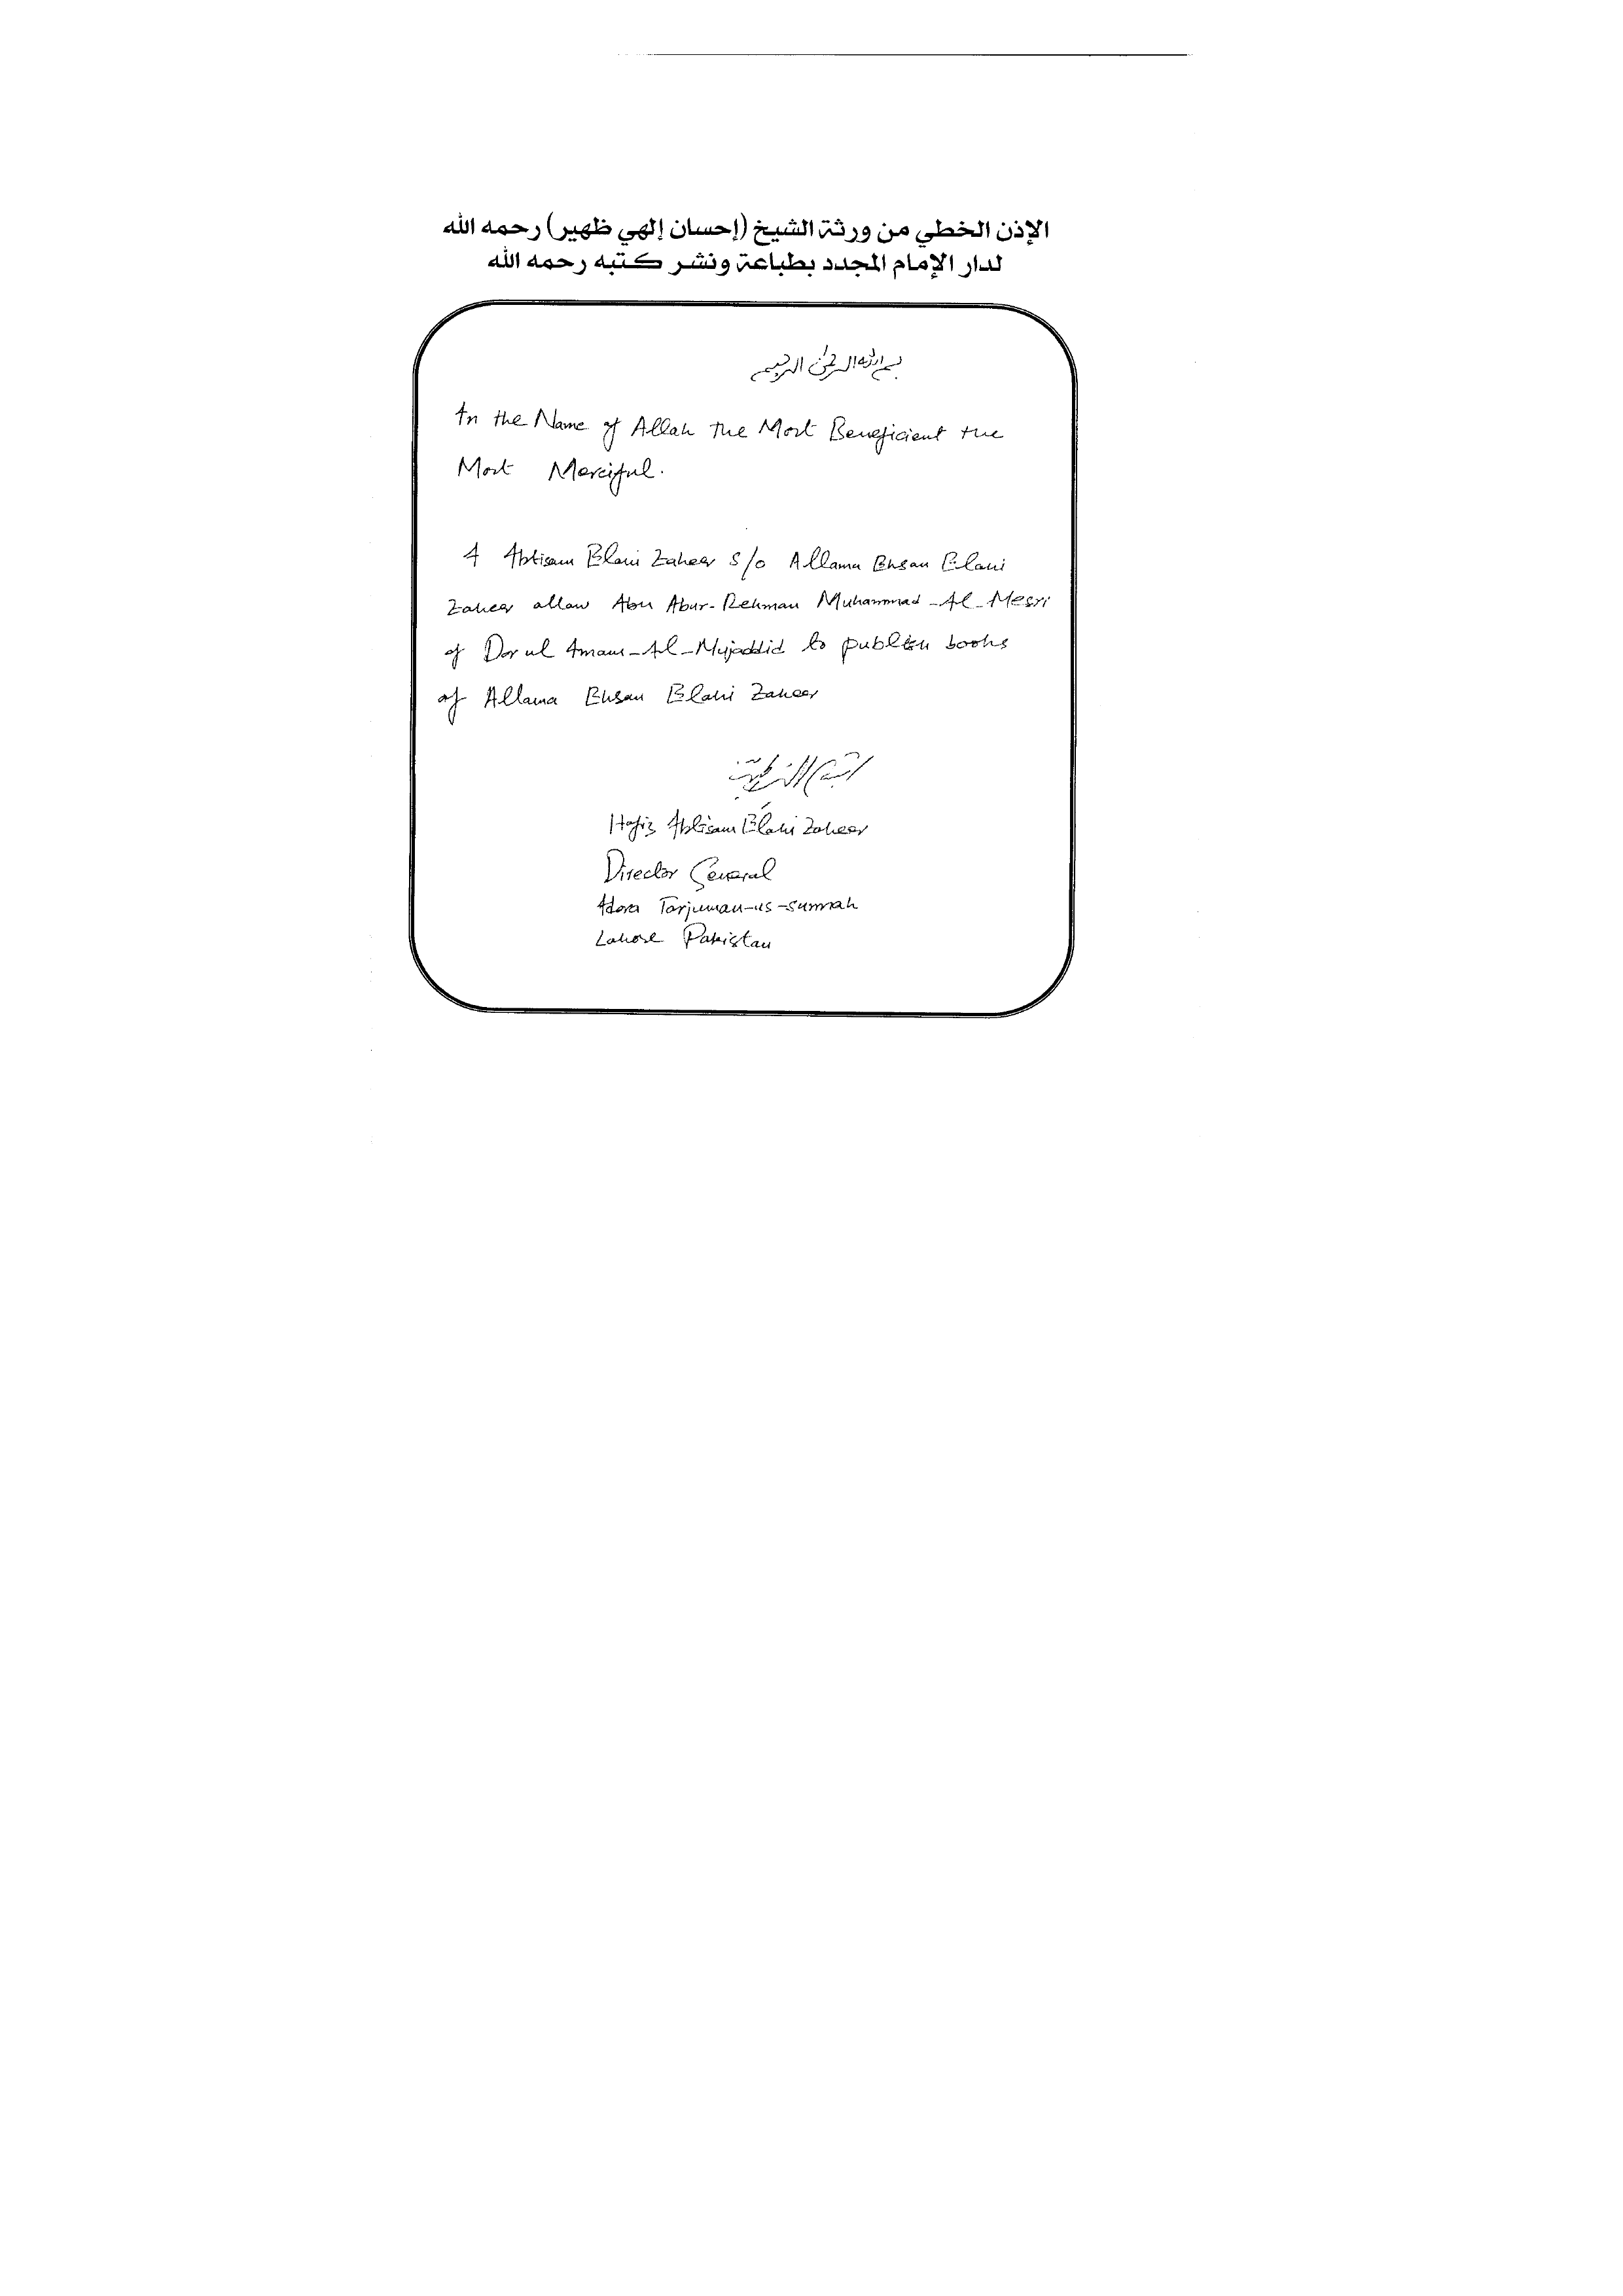 الإذن الخطي من ورثة الشيخ (إحسان إلهي ظهير) رحمه الله
لدار الإمام المجدد بطباعة ونشر كتبه رحمه الله
بسم الله الرحمن الرحيم
In the Name of Allah the Most Beneficient the
Most Merciful.
I Ibtisam Elahi Zaheer s/o Allama Ehsan Elahi
Zaheer allow Abu Abur-Rehman Muhammad-Al-Mesri
of Dar ul Imam-Al-Mujaddid to publish books
of Allama Ehsan Elahi Zaheer
Hafiz Ibtisam Elahi Zaheer
Director General
Idara Tarjuman-us-Sunnah
Lahore Pakistan